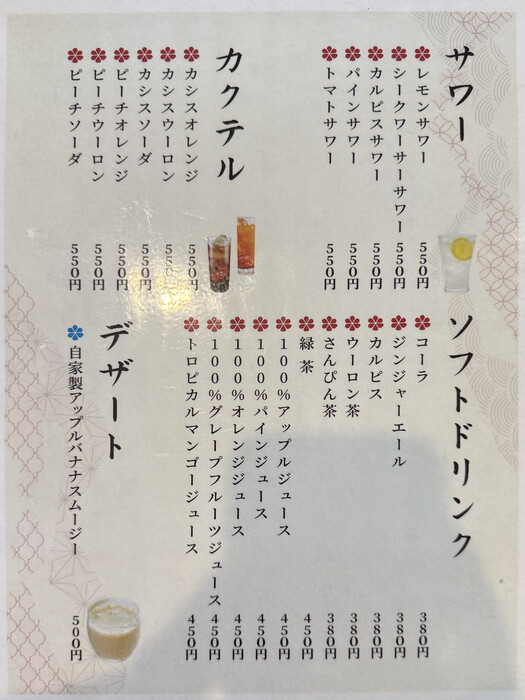 サワー
レモンサワー 550円
シークワーサーサワー 550円
カルピスサワー 550円
パインサワー 550円
トマトサワー 550円
カクテル
カシスオレンジ 550円
カシスウーロン 550円
カシスソーダ 550円
ピーチオレンジ 550円
ピーチウーロン 550円
ピーチソーダ 550円
ソフトドリンク
コーラ 380円
ジンジャーエール 380円
カルピス 380円
ウーロン茶 380円
さんぴん茶 380円
緑茶 450円
100%アップルジュース 450円
100%パインジュース 450円
100%オレンジジュース 450円
100%グレープフルーツジュース 450円
トロピカルマンゴージュース 450円
デザート
自家製アップルバナナスムージー 500円